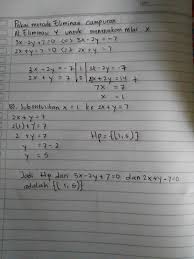 Pakai metode Eliminasi campuran
A). Eliminasi Y untuk menentukan nilai x
3x-2y+7=0 <=> 3x-2y=-7
2x+y-7=0 <=> 2x+y=7
3x-2y=-7 |1| 3x-2y=-7
2x+y=7 |2| 4x+2y=14 +
7x = 7
x = 1
B). Substitusikan x = 1 ke 2x+y=7
2x+y=7
2(1)+y=7
2+y=7
y = 7-2
y = 5
Hp = {(1,5)}
Jadi Hp dari 3x-2y+7=0 dan 2x+y-7=0
adalah {(1,5)}